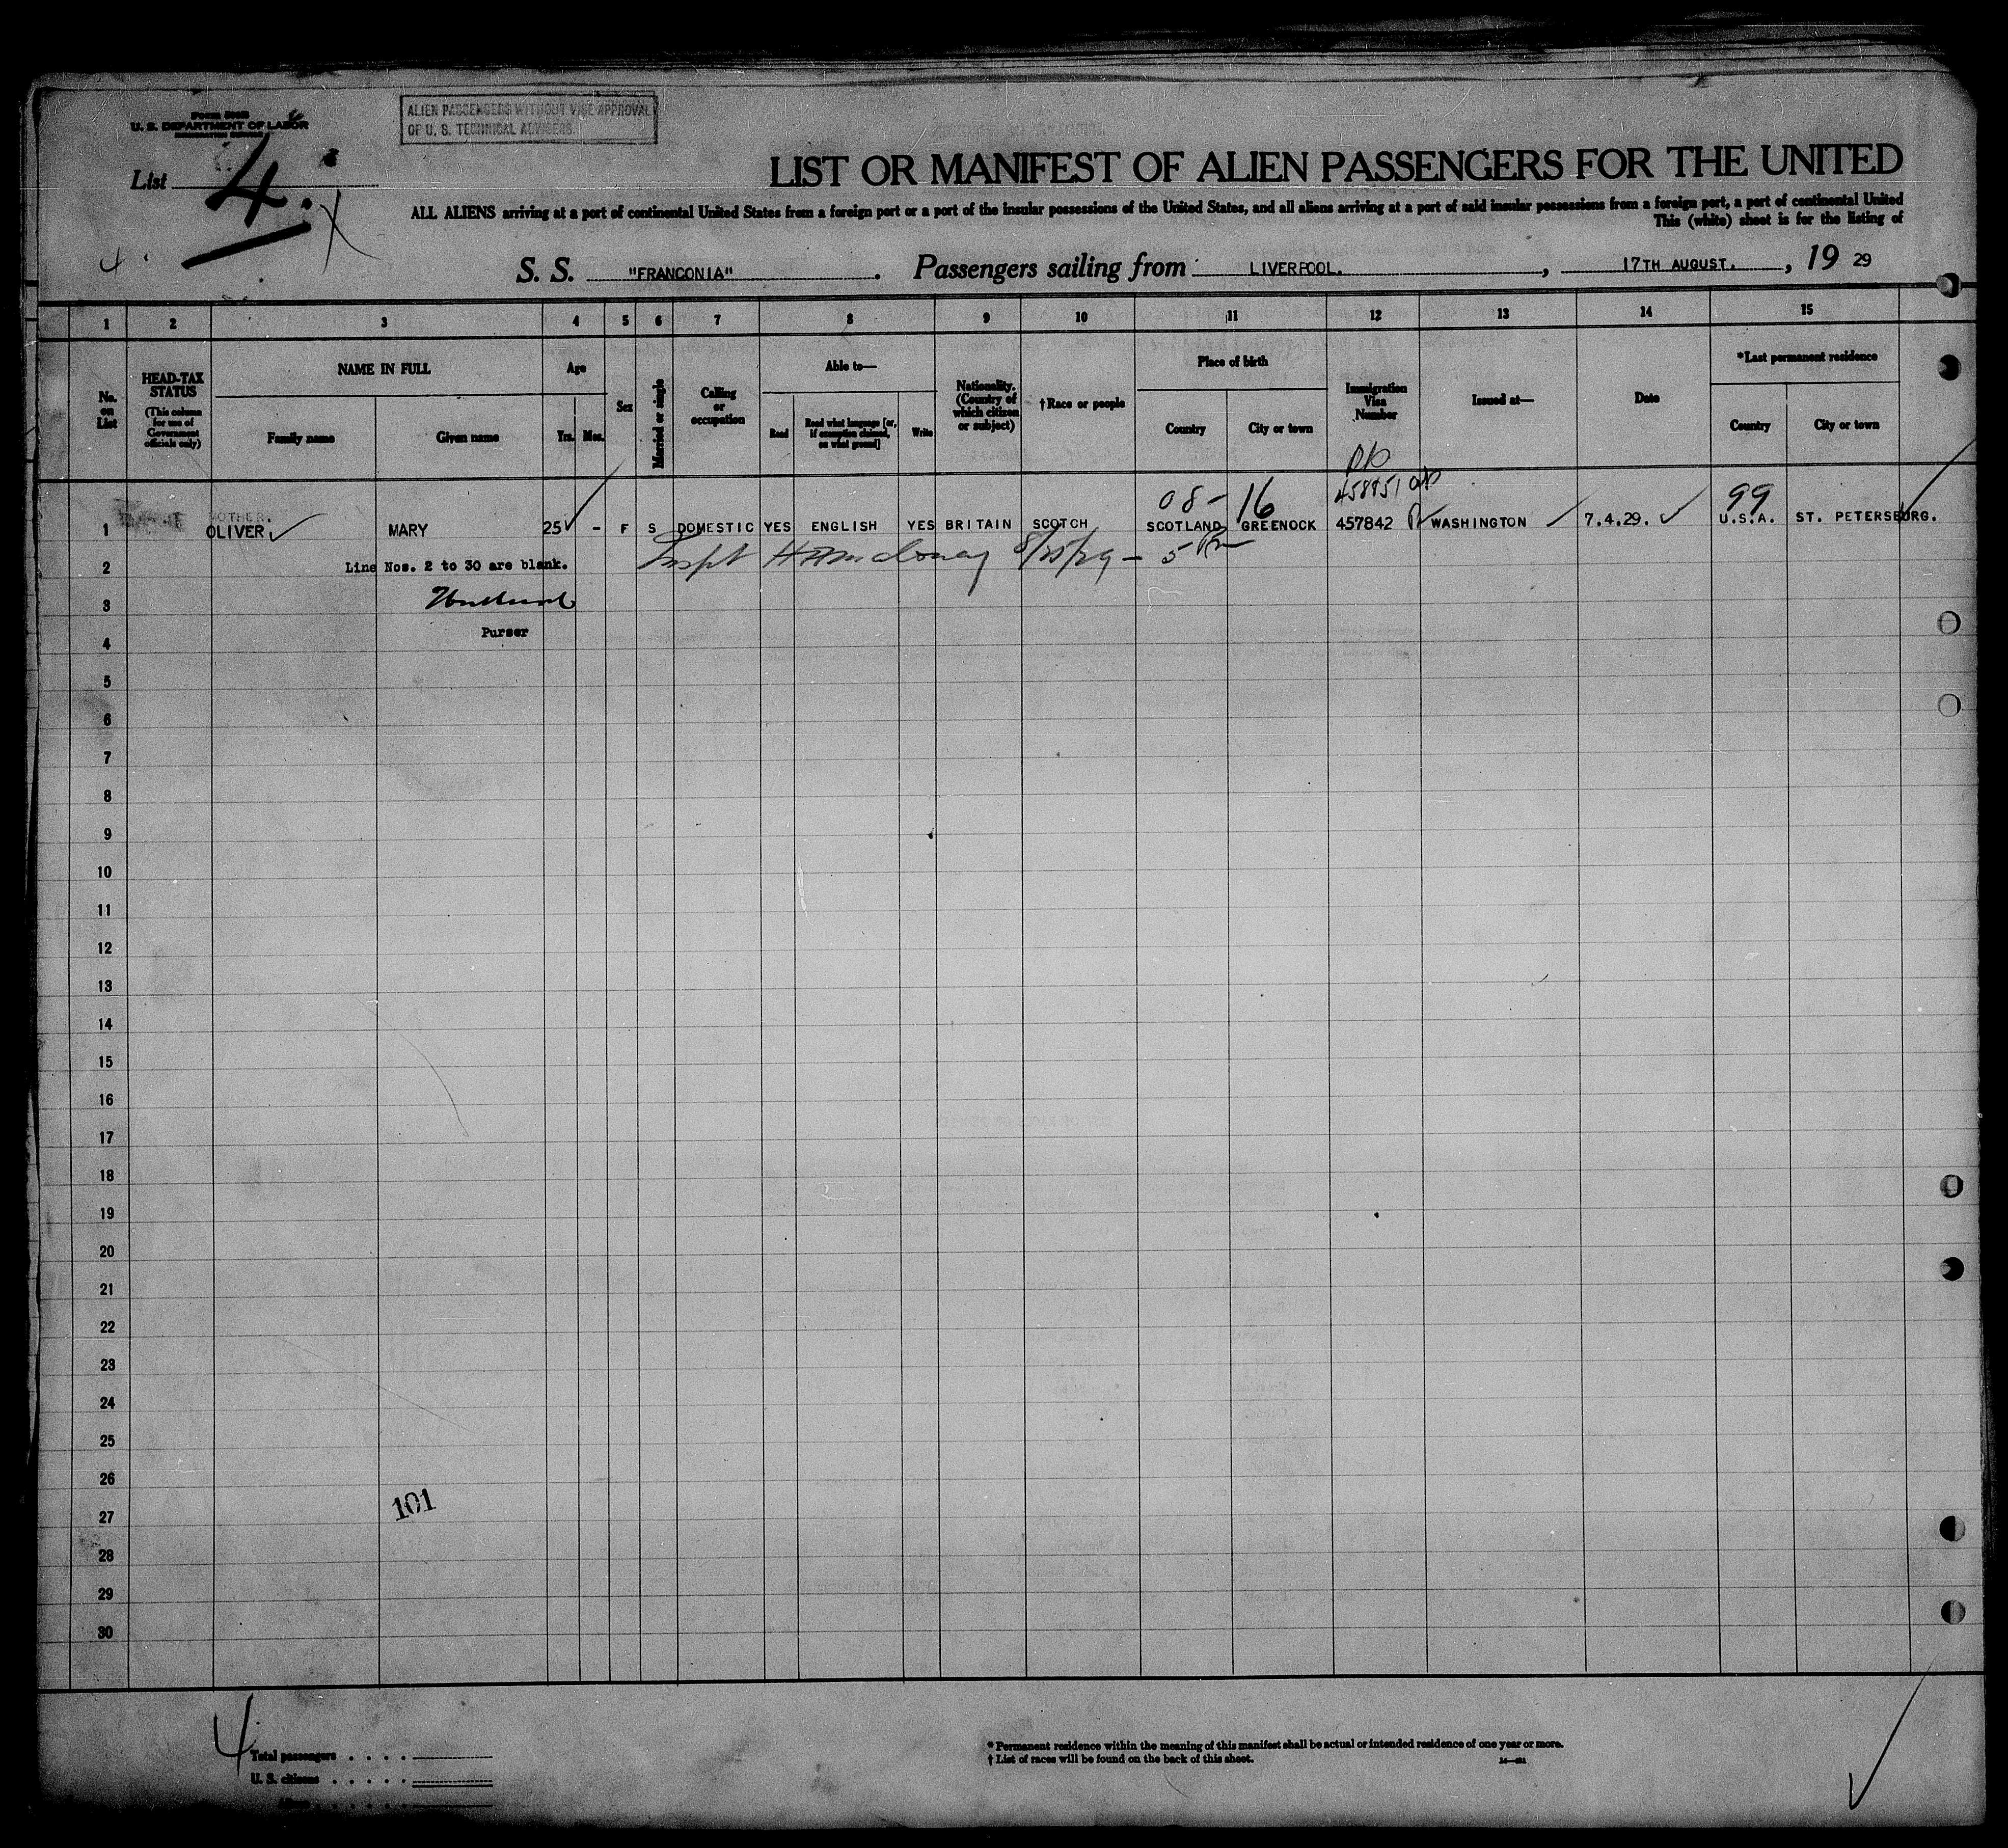 Form 500
U. S. DEPARTMENT OF LABOR
ALIEN PASSENGERS WITHOUT VISE APPROVAL
OF U. S. TECHNICAL ADVISERS.
List 4.
LIST OR MANIFEST OF ALIEN PASSENGERS FOR THE UNITED
ALL ALIENS arriving at a port of continental United States from a foreign port or a port of the insular possessions of the United States, and all aliens arriving at a port of said insular possessions from a foreign port, a port of continental United
This (white) sheet is for the listing of
4
S. S. "FRANCONIA". Passengers sailing from LIVERPOOL., 17TH AUGUST., 19 29
1 2 3 4 5 6 7 8 9 10 11 12 13 14 15
No. on List
HEAD-TAX STATUS (This column for use of Government officials only)
NAME IN FULL
Family name Given name
Age
Yrs. Mos.
Sex
Married or single
Calling or occupation
Able to—
Read Read what language [or, if exemption claimed, on what ground] Write
Nationality. (Country of which citizen or subject)
†Race or people
Place of birth
Country City or town
Immigration Visa Number
Issued at—
Date
*Last permanent residence
Country City or town
08- 16 458951 99
1 OLIVER MARY 25 - F S DOMESTIC YES ENGLISH YES BRITAIN SCOTCH SCOTLAND GREENOCK 457842 WASHINGTON 7.4.29. U.S.A. ST. PETERSBURG.
2 Line Nos. 2 to 30 are blank. Inspt 8/25/29 -
3
Purser
4
5
6
7
8
9
10
11
12
13
14
15
16
17
18
19
20
21
22
23
24
25
26
101
27
28
29
30
4
Total passengers
U. S. citizens
Aliens
* Permanent residence within the meaning of this manifest shall be actual or intended residence of one year or more.
† List of races will be found on the back of this sheet.